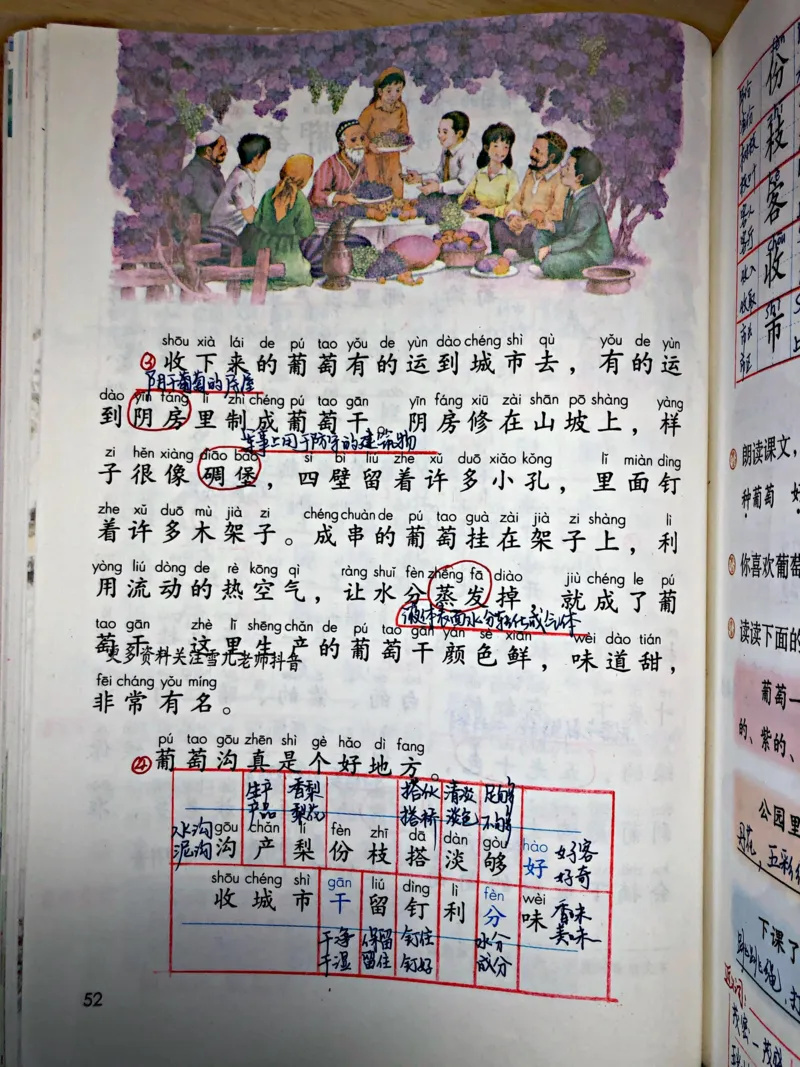 shōu xià lái de pú tao yǒu de yùn dào chéng shì qù yǒu de yùn
③收下来的葡萄有的运到城市去，有的运
阴干葡萄的房屋
dào yīn fáng lǐ zhì chéng pú tao gān yīn fáng xiū zài shān pō shàng yàng
到阴房里制成葡萄干。阴房修在山坡上，样
军事上用于防守的建筑物
zi hěn xiàng diāo bǎo sì bì liú zhe xǔ duō xiǎo kǒng lǐ miàn dìng
子很像碉堡，四壁留着许多小孔，里面钉
zhe xǔ duō mù jià zi chéng chuàn de pú tao guà zài jià zi shàng lì
着许多木架子。成串的葡萄挂在架子上，利
yòng liú dòng de rè kōng qì ràng shuǐ fèn zhēng fā diào jiù chéng le pú
用流动的热空气，让水分蒸发掉，就成了葡
液体表面水分转化成气体
tao gān zhè lǐ shēng chǎn de pú tao gān yán sè xiān wèi dào tián
萄干。这里生产的葡萄干颜色鲜，味道甜，
更多资料关注雪儿老师抖音
fēi cháng yǒu míng
非常有名。
pú tao gōu zhēn shì gè hǎo dì fang
④葡萄沟真是个好地方。
生产 香梨 搭伙 清淡 足够
产品 梨花 搭桥 淡色 不够
水沟 泥沟
gōu chǎn lí fèn zhī dā dàn gòu hào
沟 产 梨 份 枝 搭 淡 够 好
好客 好奇
shōu chéng shì gān liú dìng lì fèn wèi
收 城 市 干 留 钉 利 分 味
香味 美味
干净 保留 钉住 水分
干湿 留住 钉好 成分
52
份
枝
客
收
市
朗读课文，
种葡萄 好
你喜欢葡萄
读读下面的
葡萄一
的、紫的、
公园里
五彩
下课了
跳跳绳，打
近义词：